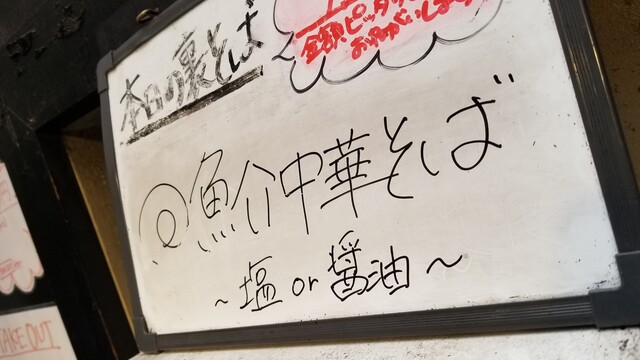 本日の裏そば
金額ピッタリ
おねがいします
@魚介中華そば
~塩 or 醤油~
TAKE OUT